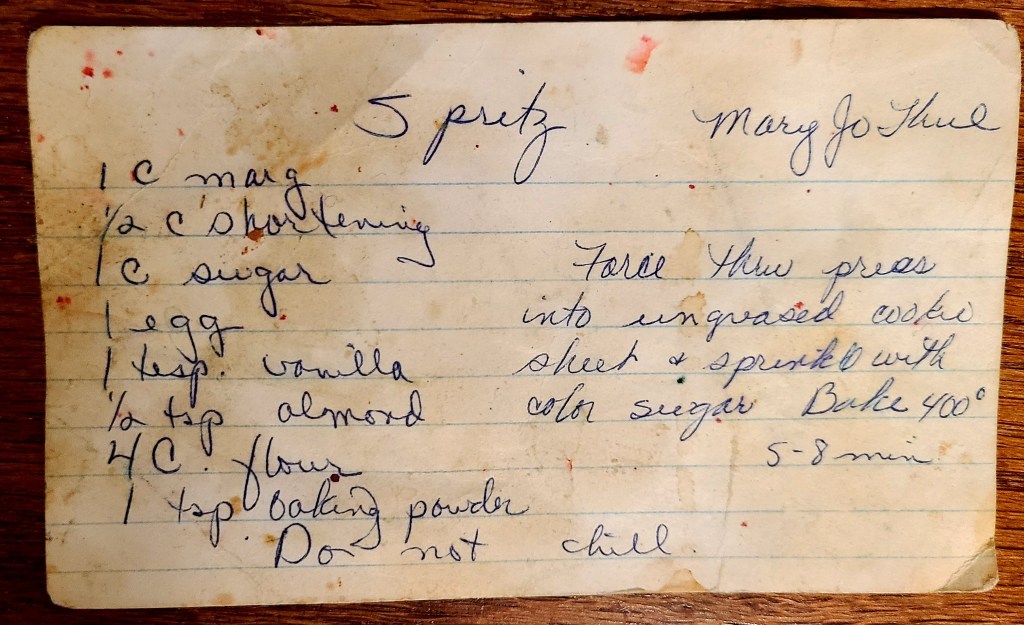 Spritz Mary Jo Thul
1 C marg
1/2 C shortening
1 C sugar
1 egg
1 tesp. vanilla
1/2 tsp almond
4 C. flour
1 tsp baking powder
Do not chill.
Force thru press
into ungreased cookie
sheet & sprinkle with
color sugar Bake 400°
5-8 min